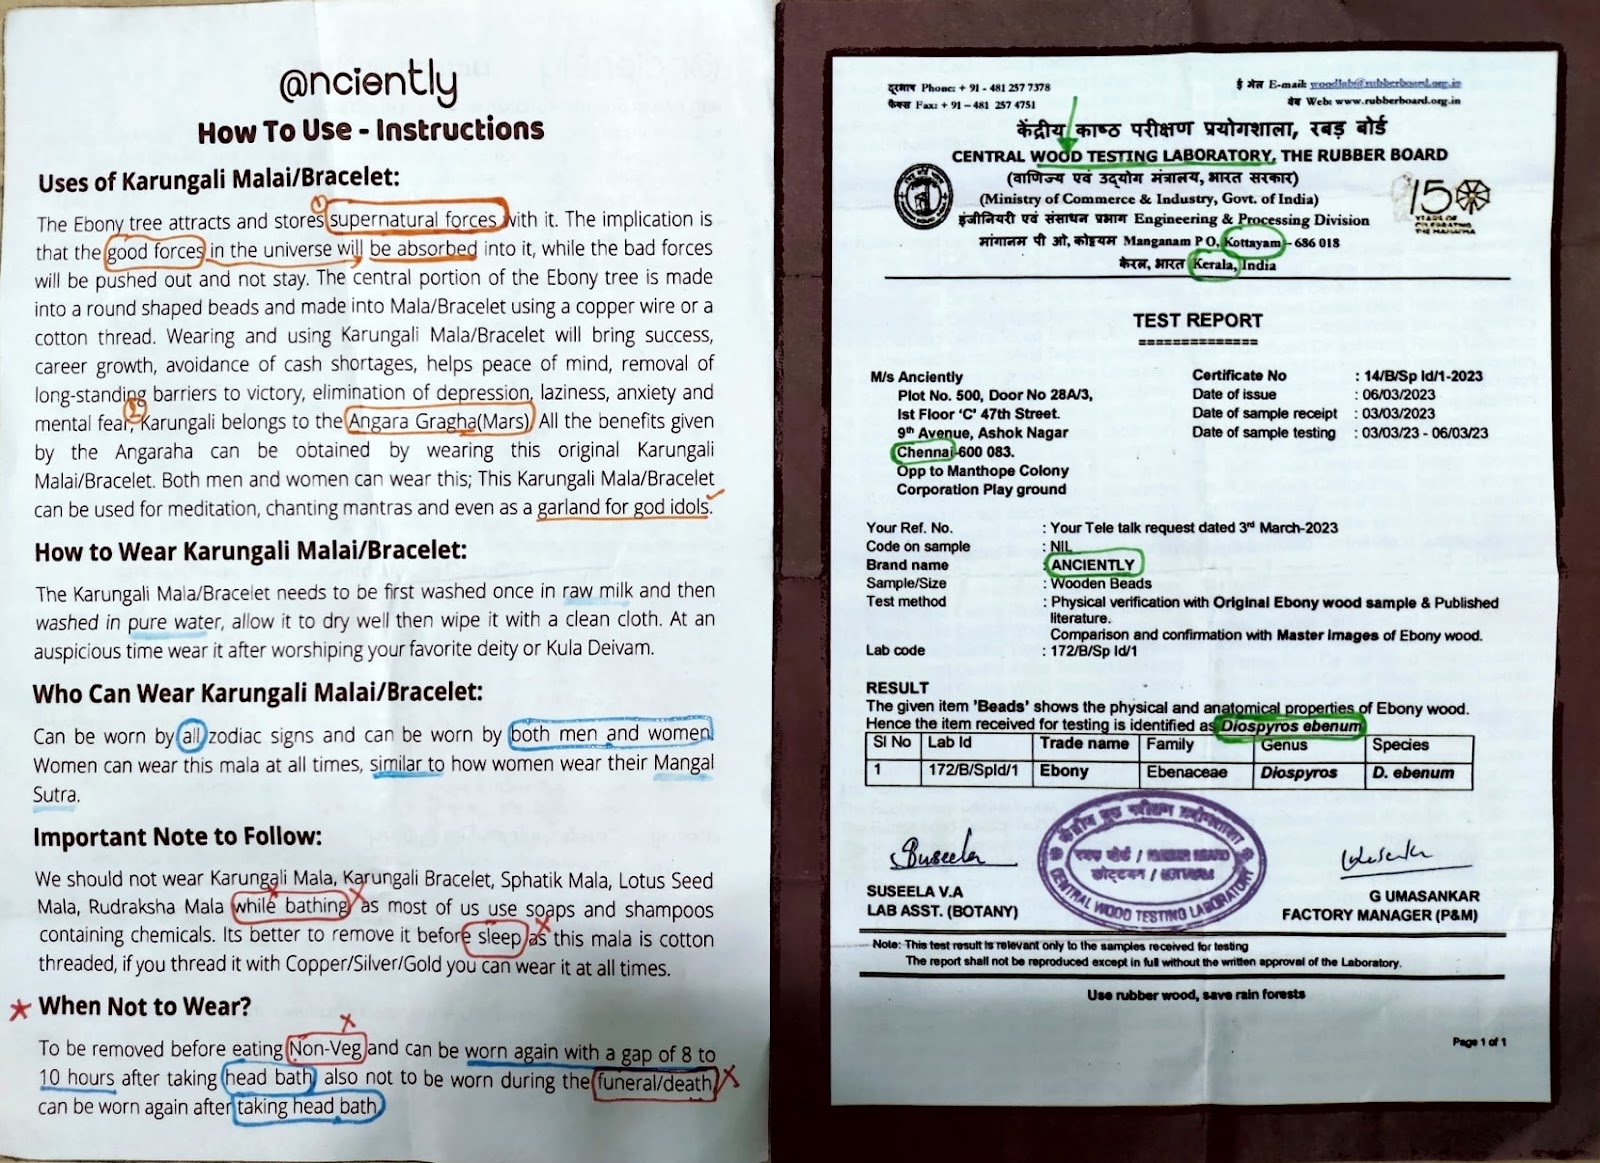 @nciently
How To Use - Instructions
Uses of Karungali Malai/Bracelet:
1
The Ebony tree attracts and stores supernatural forces with it. The implication is
that the good forces in the universe will be absorbed into it, while the bad forces
will be pushed out and not stay. The central portion of the Ebony tree is made
into a round shaped beads and made into Mala/Bracelet using a copper wire or a
cotton thread. Wearing and using Karungali Mala/Bracelet will bring success,
career growth, avoidance of cash shortages, helps peace of mind, removal of
long-standing barriers to victory, elimination of depression, laziness, anxiety and
2
mental fear, Karungali belongs to the Angara Gragha(Mars) All the benefits given
by the Angaraha can be obtained by wearing this original Karungali
Malai/Bracelet. Both men and women can wear this; This Karungali Mala/Bracelet
can be used for meditation, chanting mantras and even as a garland for god idols.
How to Wear Karungali Malai/Bracelet:
The Karungali Mala/Bracelet needs to be first washed once in raw milk and then
washed in pure water, allow it to dry well then wipe it with a clean cloth. At an
auspicious time wear it after worshiping your favorite deity or Kula Deivam.
Who Can Wear Karungali Malai/Bracelet:
Can be worn by all zodiac signs and can be worn by both men and women
Women can wear this mala at all times, similar to how women wear their Mangal
Sutra.
Important Note to Follow:
We should not wear Karungali Mala, Karungali Bracelet, Sphatik Mala, Lotus Seed
Mala, Rudraksha Mala while bathing as most of us use soaps and shampoos
containing chemicals. Its better to remove it before sleep as this mala is cotton
threaded, if you thread it with Copper/Silver/Gold you can wear it at all times.
When Not to Wear?
To be removed before eating Non-Veg and can be worn again with a gap of 8 to
10 hours after taking head bath also not to be worn during the funeral/death
can be worn again after taking head bath
दूरभाष Phone: + 91 - 481 257 7378
फैक्स Fax: + 91 – 481 257 4751
ई मेल E-mail: woodlab@rubberboard.org.in
वेब Web: www.rubberboard.org.in
केंद्रीय काष्ठ परीक्षण प्रयोगशाला, रबड़ बोर्ड
CENTRAL WOOD TESTING LABORATORY, THE RUBBER BOARD
(वाणिज्य एवं उद्योग मंत्रालय, भारत सरकार)
(Ministry of Commerce & Industry, Govt. of India)
इंजीनियरी एवं संसाधन प्रभाग Engineering & Processing Division
मांगानम पी ओ, कोट्टयम Manganam P O, Kottayam – 686 018
केरल, भारत Kerala, India
150
YEARS OF
CELEBRATING
THE MAHATMA
TEST REPORT
M/s Anciently
Plot No. 500, Door No 28A/3,
Ist Floor 'C' 47th Street.
9th Avenue, Ashok Nagar
Chennai-600 083.
Opp to Manthope Colony
Corporation Play ground
Certificate No : 14/B/Sp Id/1-2023
Date of issue : 06/03/2023
Date of sample receipt : 03/03/2023
Date of sample testing : 03/03/23 - 06/03/23
Your Ref. No. : Your Tele talk request dated 3rd March-2023
Code on sample : NIL
Brand name : ANCIENTLY
Sample/Size : Wooden Beads
Test method : Physical verification with Original Ebony wood sample & Published
literature.
Comparison and confirmation with Master Images of Ebony wood.
Lab code : 172/B/Sp Id/1
RESULT
The given item 'Beads' shows the physical and anatomical properties of Ebony wood.
Hence the item received for testing is identified as Diospyros ebenum
Sl No Lab Id Trade name Family Genus Species
1 172/B/SpId/1 Ebony Ebenaceae Diospyros D. ebenum
Suseela
केंद्रीय काष्ठ परीक्षण प्रयोगशाला
रबड़ बोर्ड / RUBBER BOARD
कोट्टयम / KOTTAYAM
CENTRAL WOOD TESTING LABORATORY
SUSEELA V.A
LAB ASST. (BOTANY)
G UMASANKAR
FACTORY MANAGER (P&M)
Note: This test result is relevant only to the samples received for testing
The report shall not be reproduced except in full without the written approval of the Laboratory.
Use rubber wood, save rain forests
Page 1 of 1